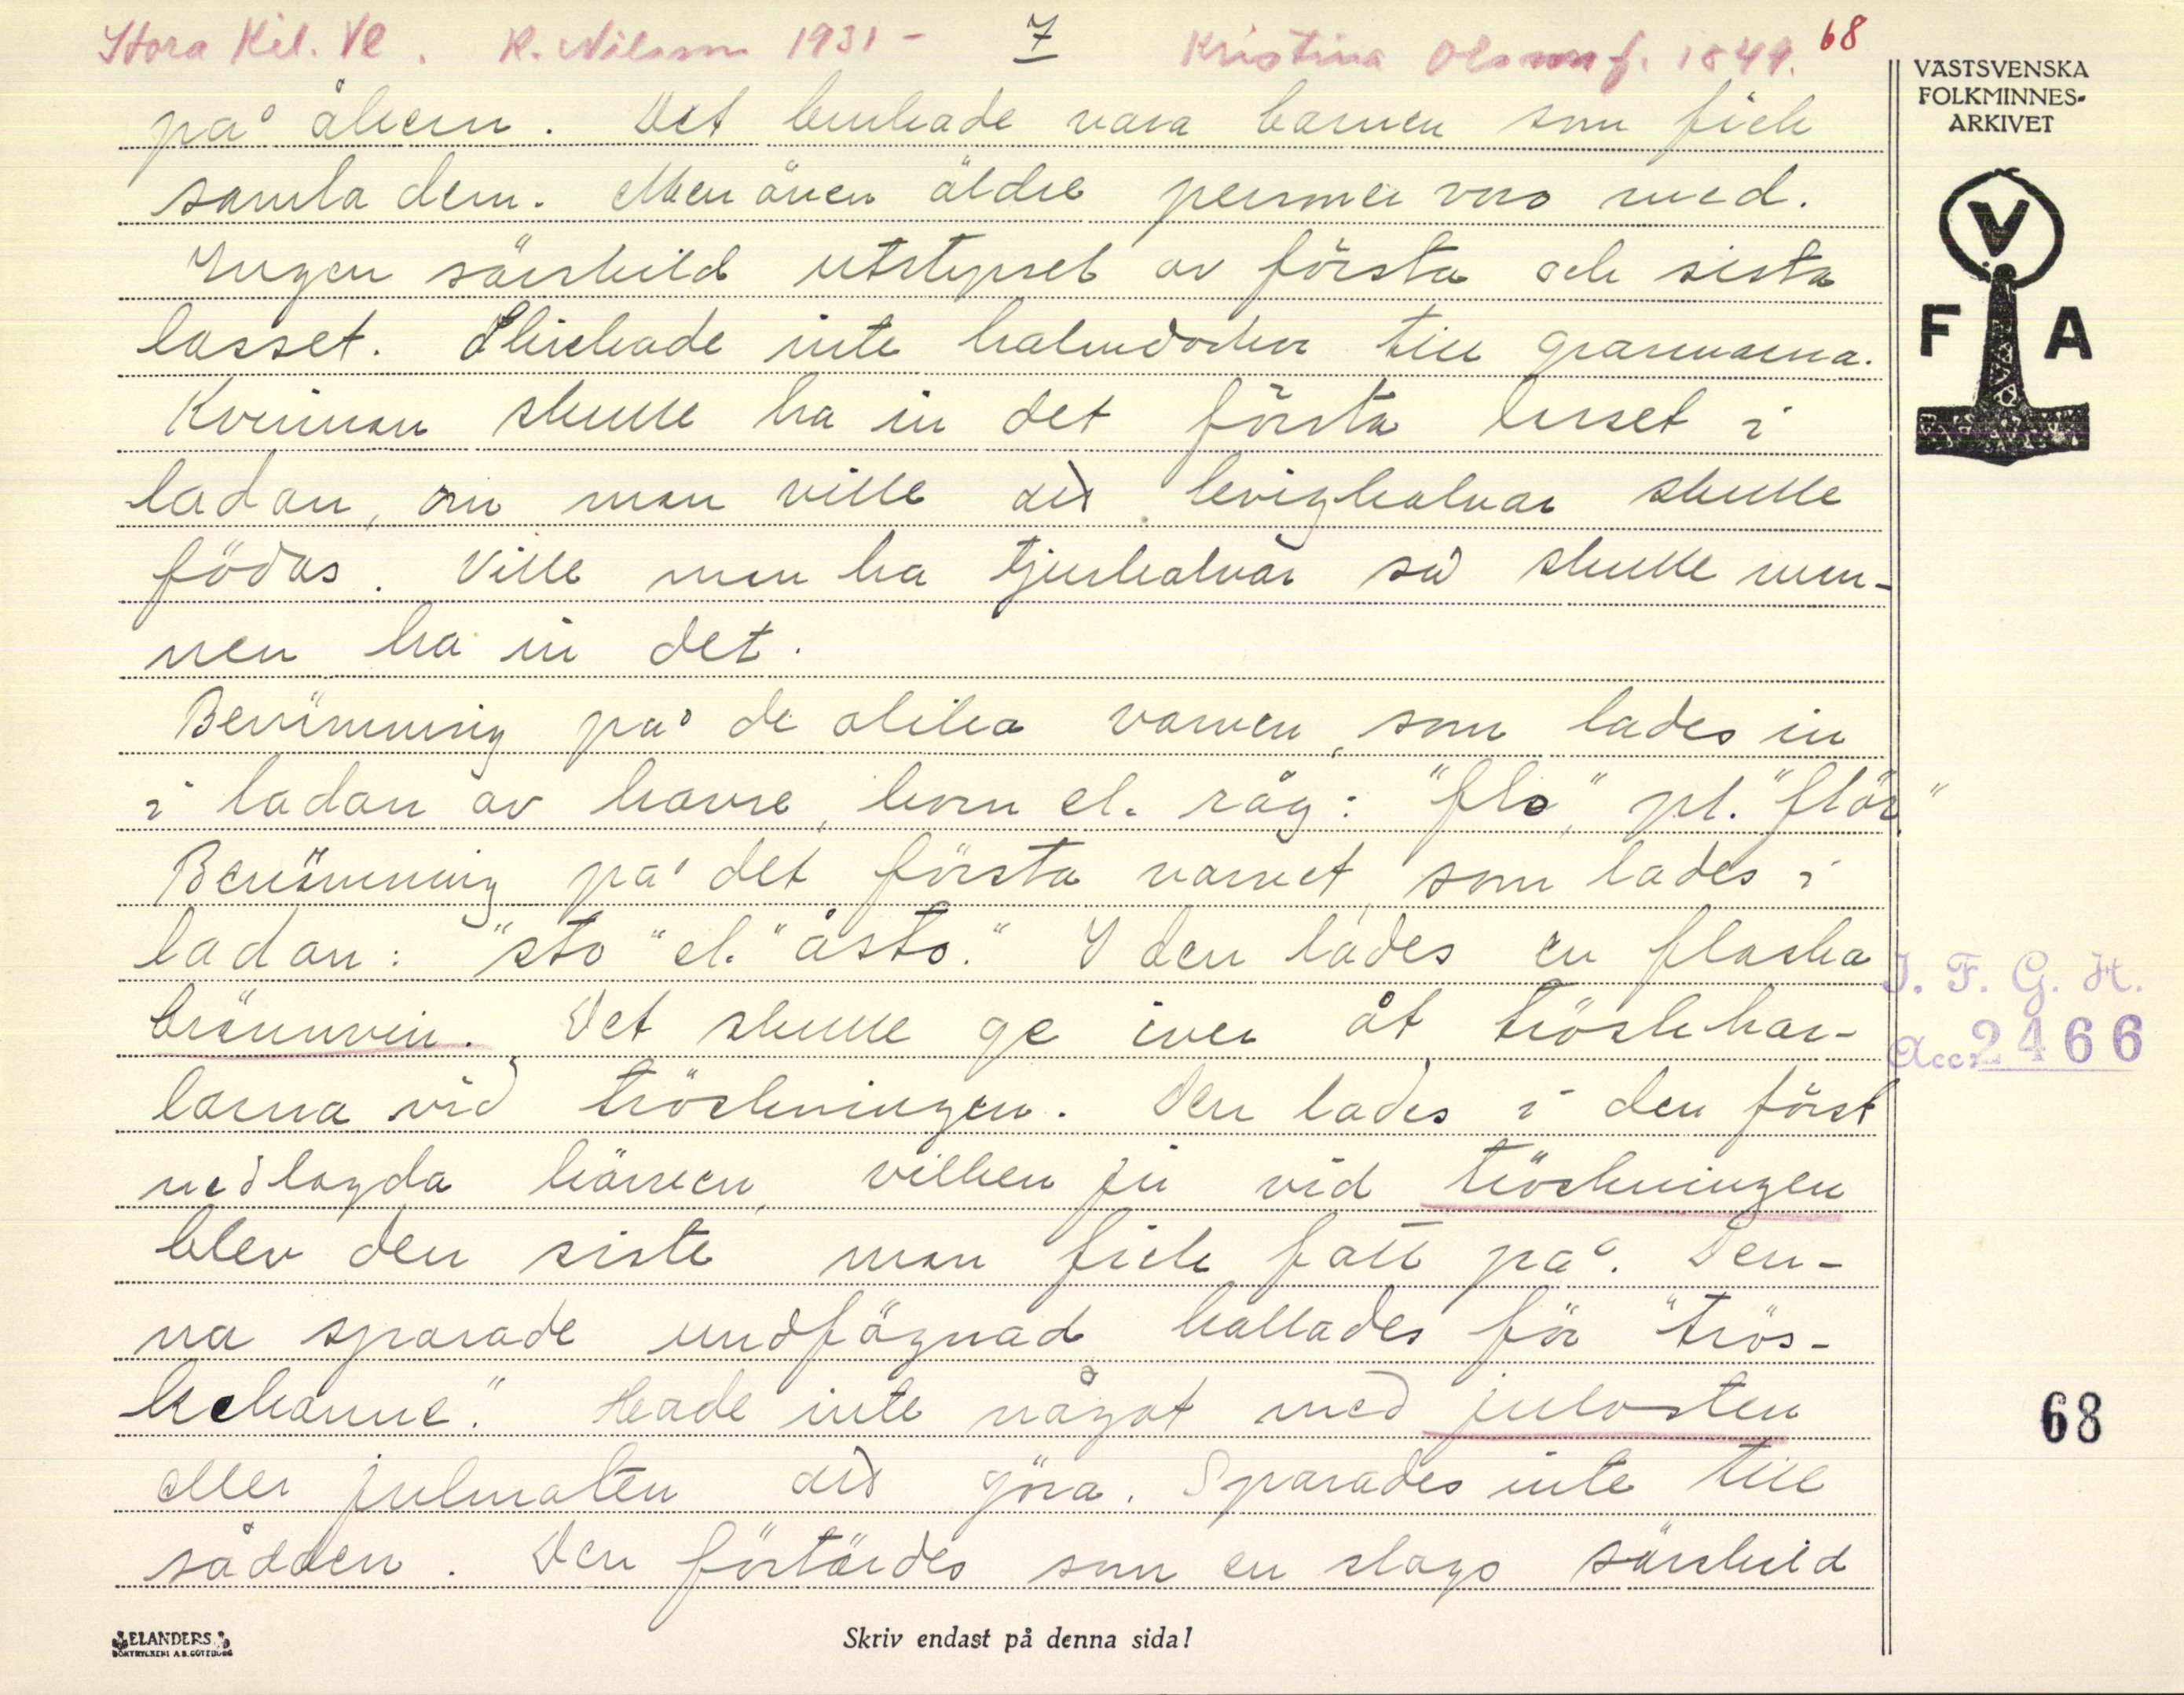 Stora Kil. Vl. K. Nilsson 1931 - 7 Kristina Olsson f. 1849. 68
VÄSTSVENSKA
FOLKMINNES-
ARKIVET
V
F A
på åkern. Det brukade vara barnen som fick
samla dem. Men även äldre personer voro med.
Ingen särskild utstyrsel av första och sista
lasset. Skickade inte halmdockor till grannarna.
Kvinnan skulle ha in det första lasset i
ladan, om man ville att kvigkalvar skulle
födas. Ville man ha tjurkalvar så skulle man-
nen ha in det.
Benämning på de olika varven, som lades in
i ladan av havre, korn el. råg: "flo", pl. "flör"
Benämning på det första varvet, som lades i
ladan: "sto" el. "åsto." I den lades en flaska
brännvin. Det skulle ge iver åt tröskkar-
larna vid tröskningen. Den lades i den först
nedlagda kärven, vilken ju vid tröskningen
blev den siste man fick fatt på. Den-
na sparade undfägnad kallades för "trös-
kekanne." Hade inte något med julosten
eller julmaten att göra. Sparades inte till
sådden. Den förtärdes som en slags särskild
I. F. G. H.
Acc: 2466
68
ELANDERS
BOKTRYCKERI A.B. GÖTEBORG
Skriv endast på denna sida!